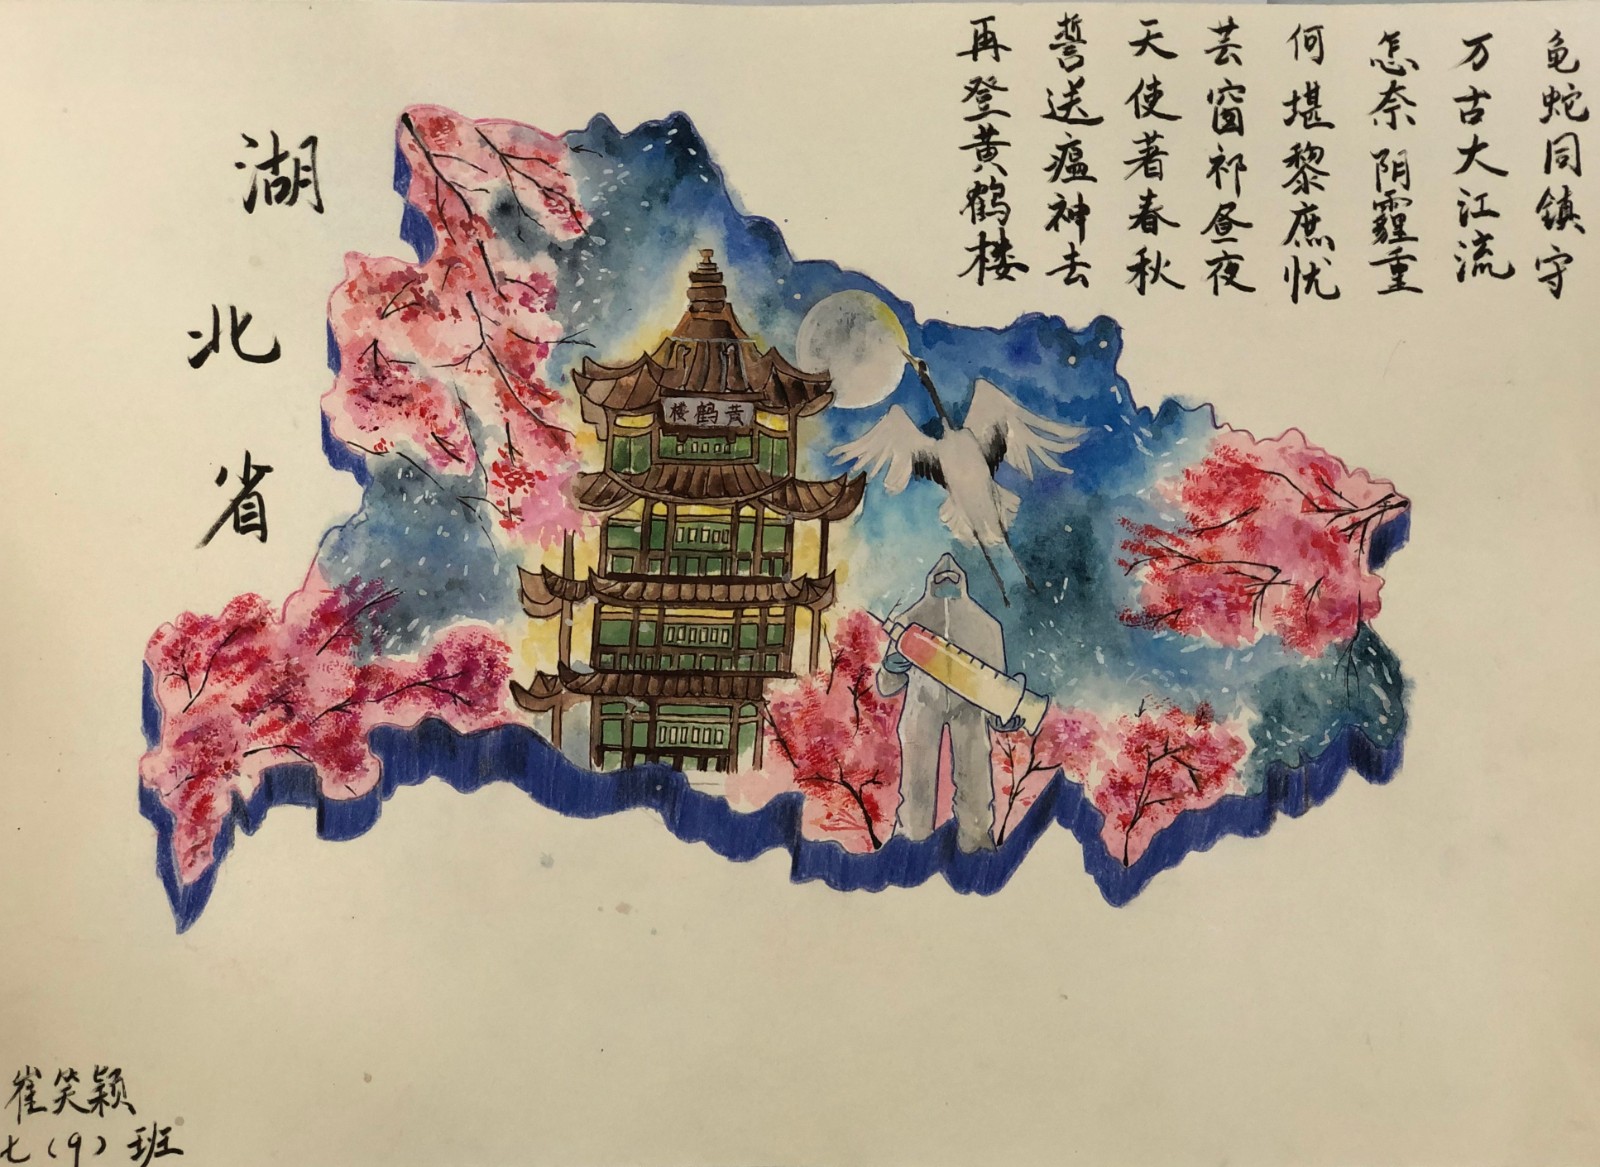 龟蛇同镇守
万古大江流
怎奈阴霾重
何堪黎庶忧
芸窗祁昼夜
天使著春秋
誓送瘟神去
再登黄鹤楼
湖北省
黄鹤楼
崔笑颖
七(9)班